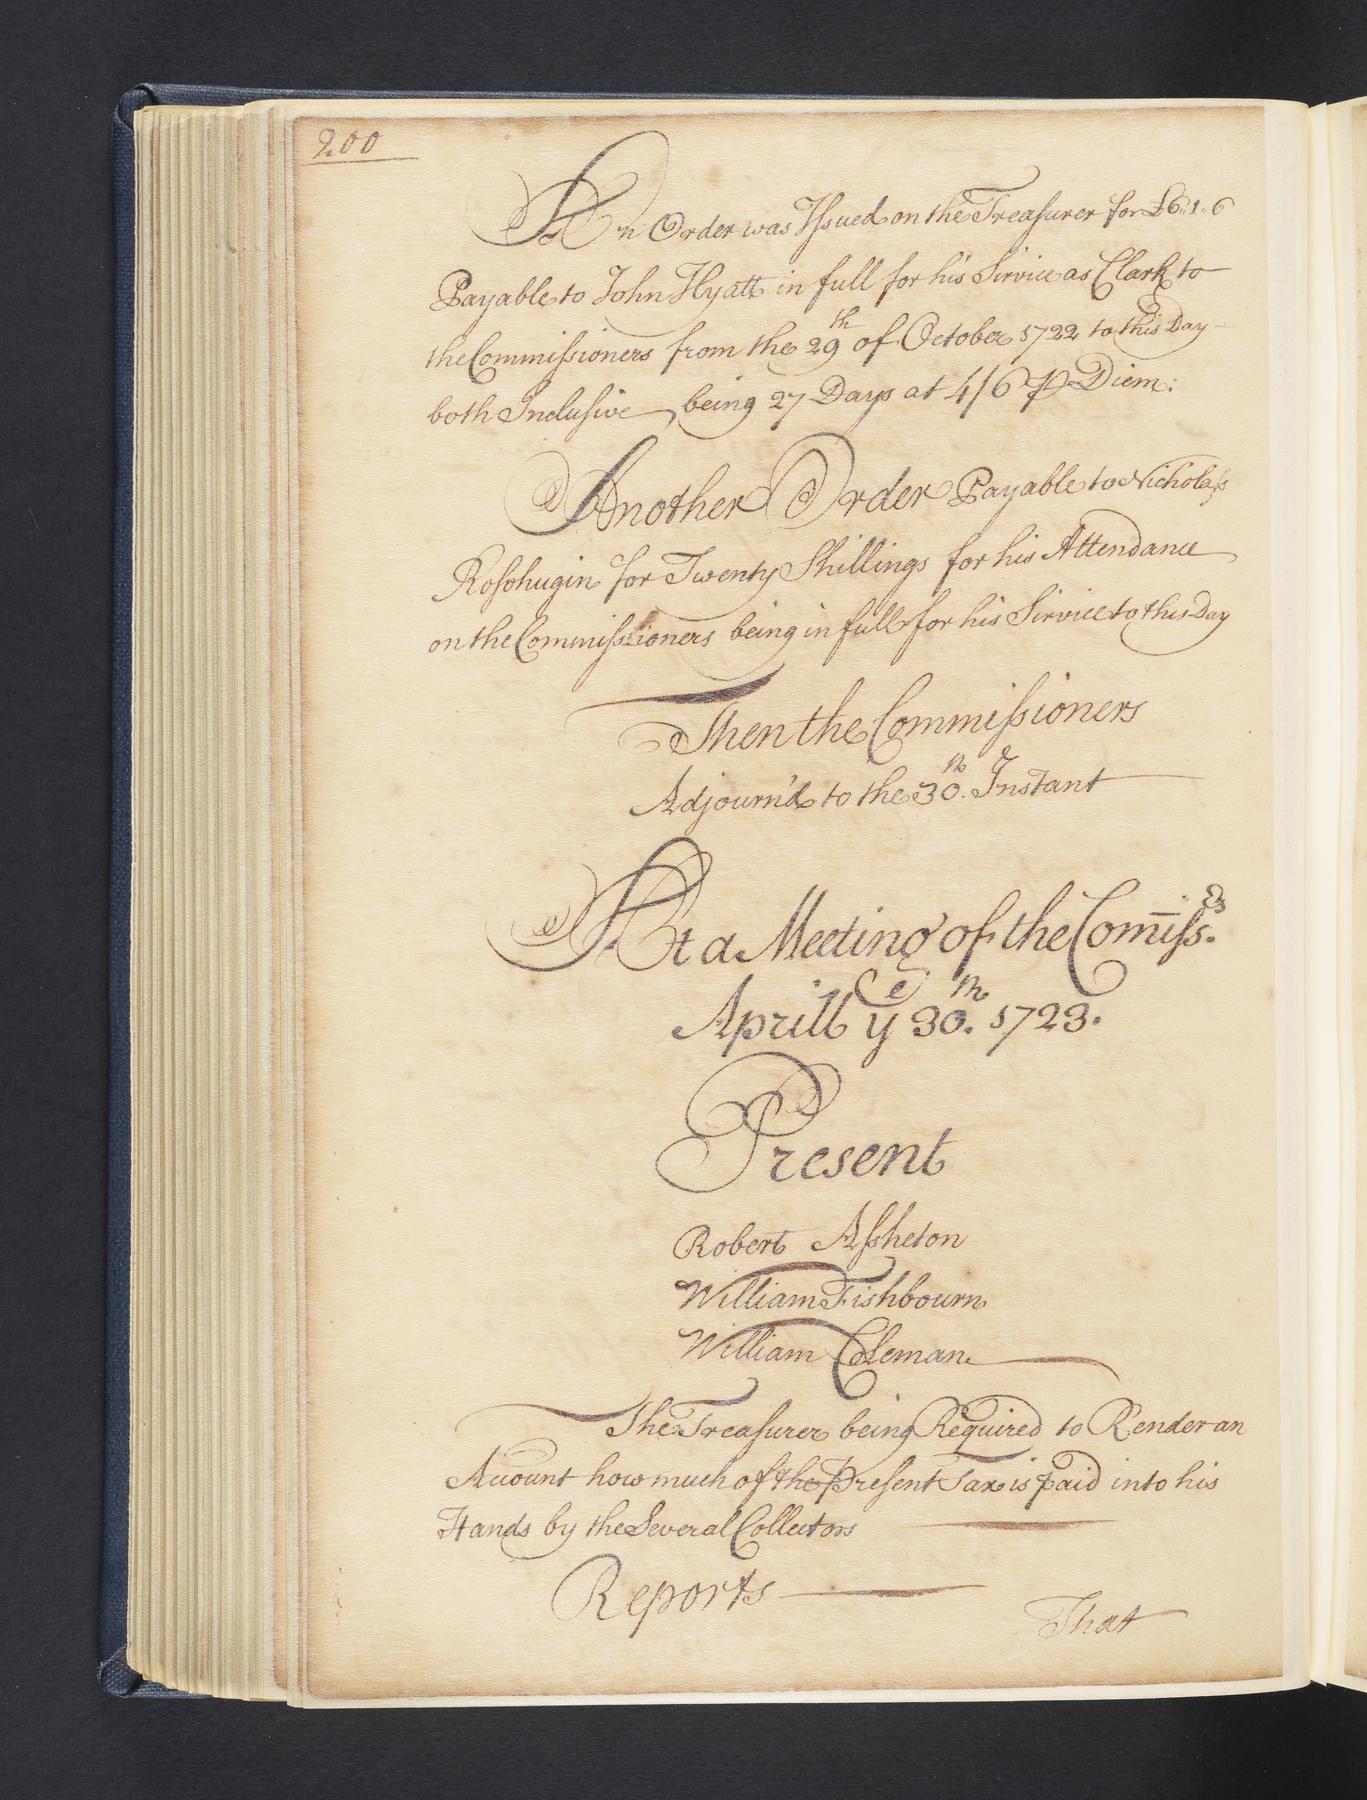 200
An Order was Issued on the Treasurer for £6..1..6
Payable to John Hyatt in full for his Service as Clark to
the Commissioners from the 29th of October 1722 to this Day
both Inclusive, being 27 Days at 4/6 ⅌ Diem:
Another Order Payable to Nicholass
Rosohugin for Twenty Shillings for his Attendance
on the Commissioners being in full for his Service to this Day
Then the Commissioners
Adjourn'd to the 30th. Instant
At a Meeting of the Com̄issrs.
Aprill ye 30th. 1723.
Present
Robert Assheton
William Fishbourn
William Coleman.
The Treasurer being Required to Render an
Account how much of the Present Tax is paid into his
Hands by the Several Collectors
Reports
That